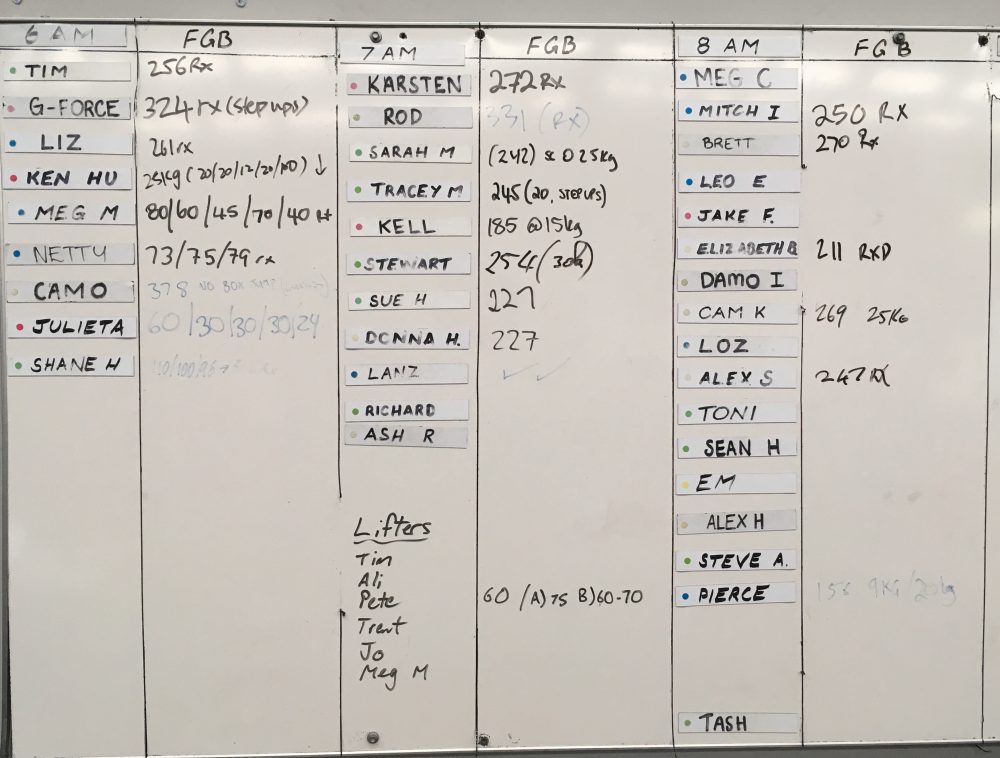 6 AM FGB
TIM 256 Rx
G-FORCE 324 rx (step ups)
LIZ 261 rx
KEN HU 25kg (20/20/12/20/ ) ↓
MEG M 80/60/45/70/40
NETTY 73/75/79 rx
CAMO 378 NO BOX JUMP
JULIETA 60/30/30/30/24
SHANE H
7 AM FGB
KARSTEN 272 Rx
ROD 331 (RX)
SARAH M (242) @ 25kg
TRACEY M 245 (20, STEP UPS)
KELL 185 @ 15kg
STEWART 254
SUE H 227
DONNA H. 227
LANZ ✓ ✓
RICHARD
ASH R
Lifters
Tim
Ali
Pete 60 /A) 75 B) 60-70
Trent
Jo
Meg M
8 AM FGB
MEG C
MITCH I 250 RX
BRETT 270 Rx
LEO E
JAKE F.
ELIZABETH B 211 RXD
DAMO I
CAM K 269 25KG
LOZ
ALEX S 247 RX
TONI
SEAN H
EM
ALEX H
STEVE A.
PIERCE 9KG/20kg
TASH